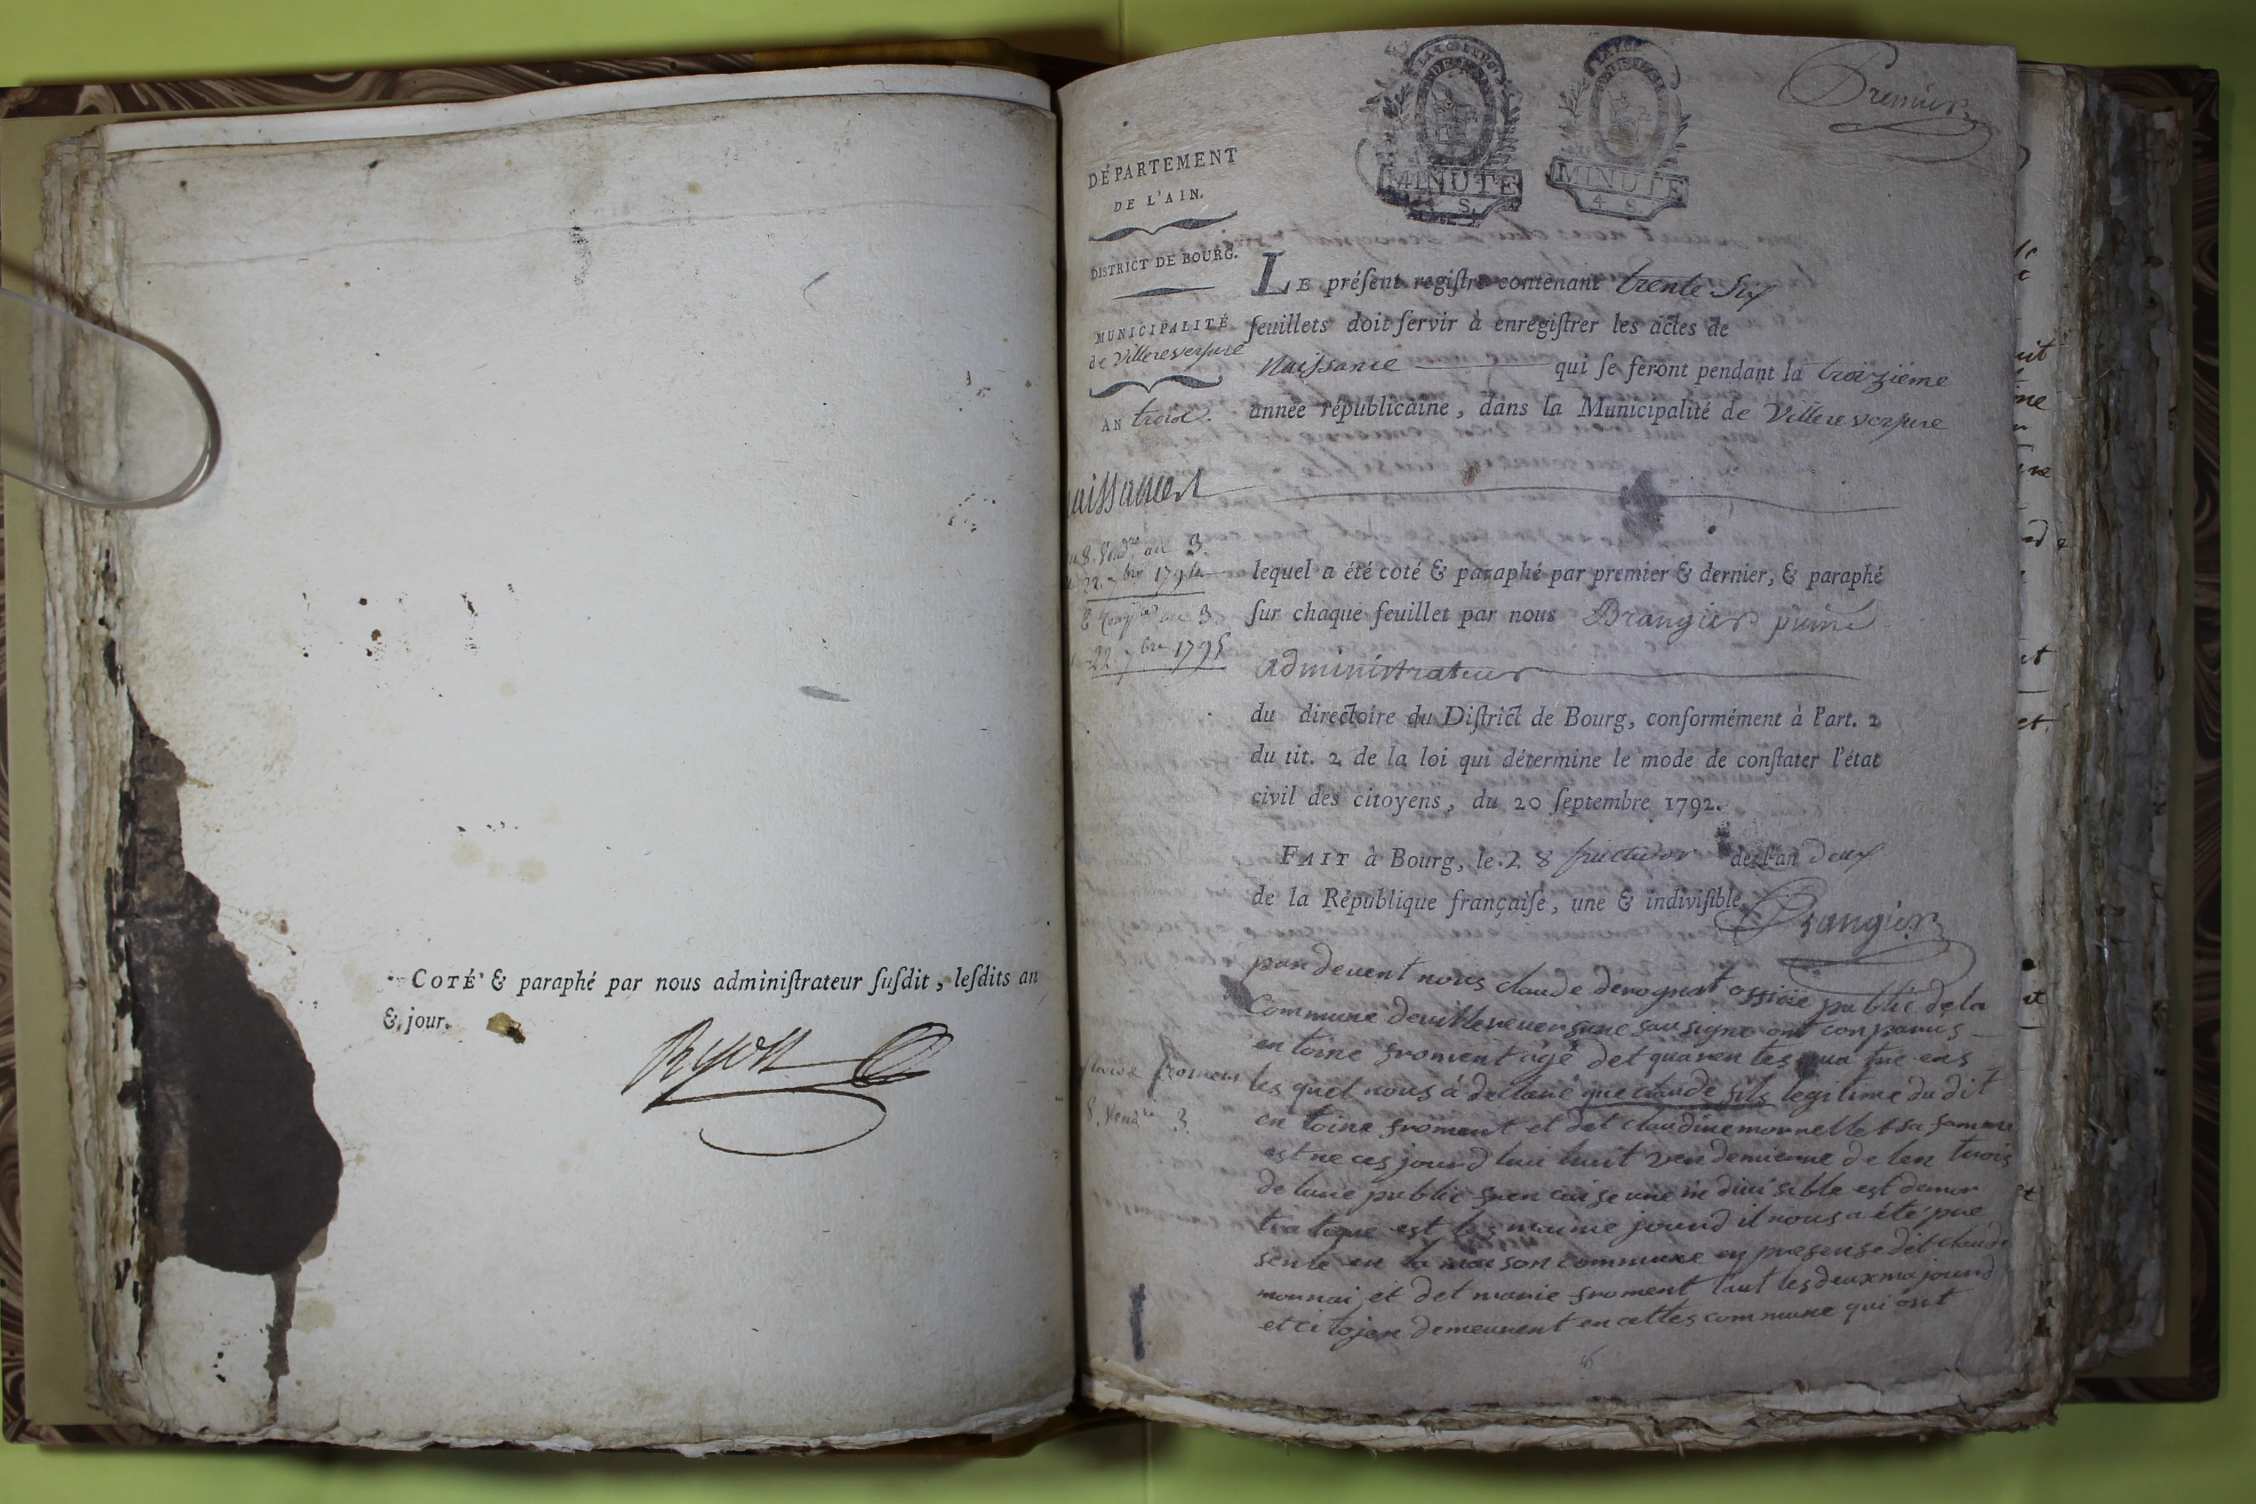 COTÉ & paraphé par nous adminiſtrateur ſuſdit, leſdits an
& jour.
Premier
MINUTE
4 S.
MINUTE
4 S
DÉPARTEMENT
DE L'AIN.
DISTRICT DE BOURG.
MUNICIPALITÉ
de Villereversure
AN trois.
LE préſent regiſtre contenant trente ſix
feuillets doit ſervir à enregiſtrer les actes de
Naissance qui ſe feront pendant la troizieme
année républicaine, dans la Municipalité de Villereversure
naissances
8. Vend.re an 3.
22. 7bre 1794
an 3.
22 7bre 1795
lequel a été coté & paraphé par premier & dernier, & paraphé
ſur chaque feuillet par nous Brangier puiné
administrateur
du directoire du Diſtrict de Bourg, conformément à l'art. 2
du tit. 2 de la loi qui détermine le mode de conſtater l'état
civil des citoyens, du 20 ſeptembre 1792.
FAIT à Bourg, le 28 fructidor de l'an deux
de la République françaiſe, une & indiviſible.
Brangier
pardevent nous claude derognat officié public de la
Commune devillereversure sousigne ont conparus
entoine froment agé det quarentes quatre ens
les quel nous á declaré que claude fils legitime du dit
entoine froment et det claudine mornellet sa famme
est ne ces jourd huu huit vendemienne de len trois
de lune public francaise une in divisible est demor
tratique est les maime jourd il nous a été pre
sente en la maeson commune en presense det claude
monnai et det marie froment tout les deux majourd
et citojen demeurent en cettes commune qui ont
claude froment
8. Vend.re 3.